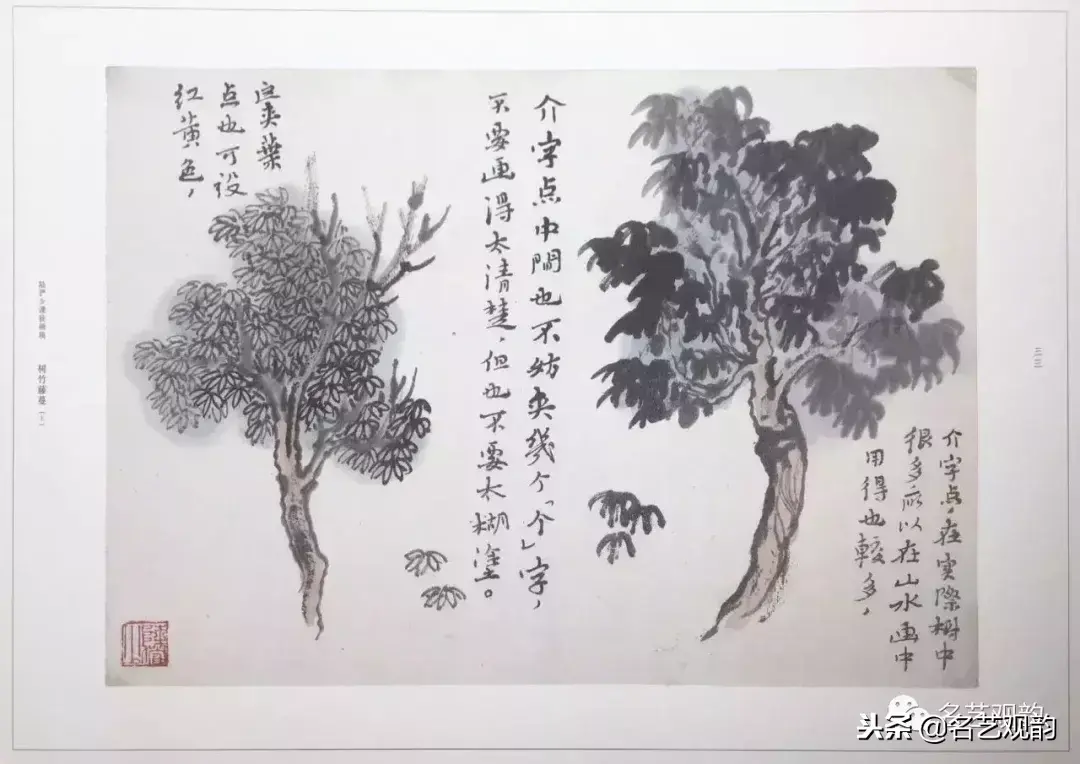 介字点，在实際树中
很多所以在山水画中
用得也較多，
介字点中間也不妨夹幾个「个」字，
不要画得太清楚，但也不要太糊塗。
夹葉
点也可设
红黄色，
陆俨少课徒画稿 树竹藤蔓（上）
三三
名艺观韵
头条 @名艺观韵